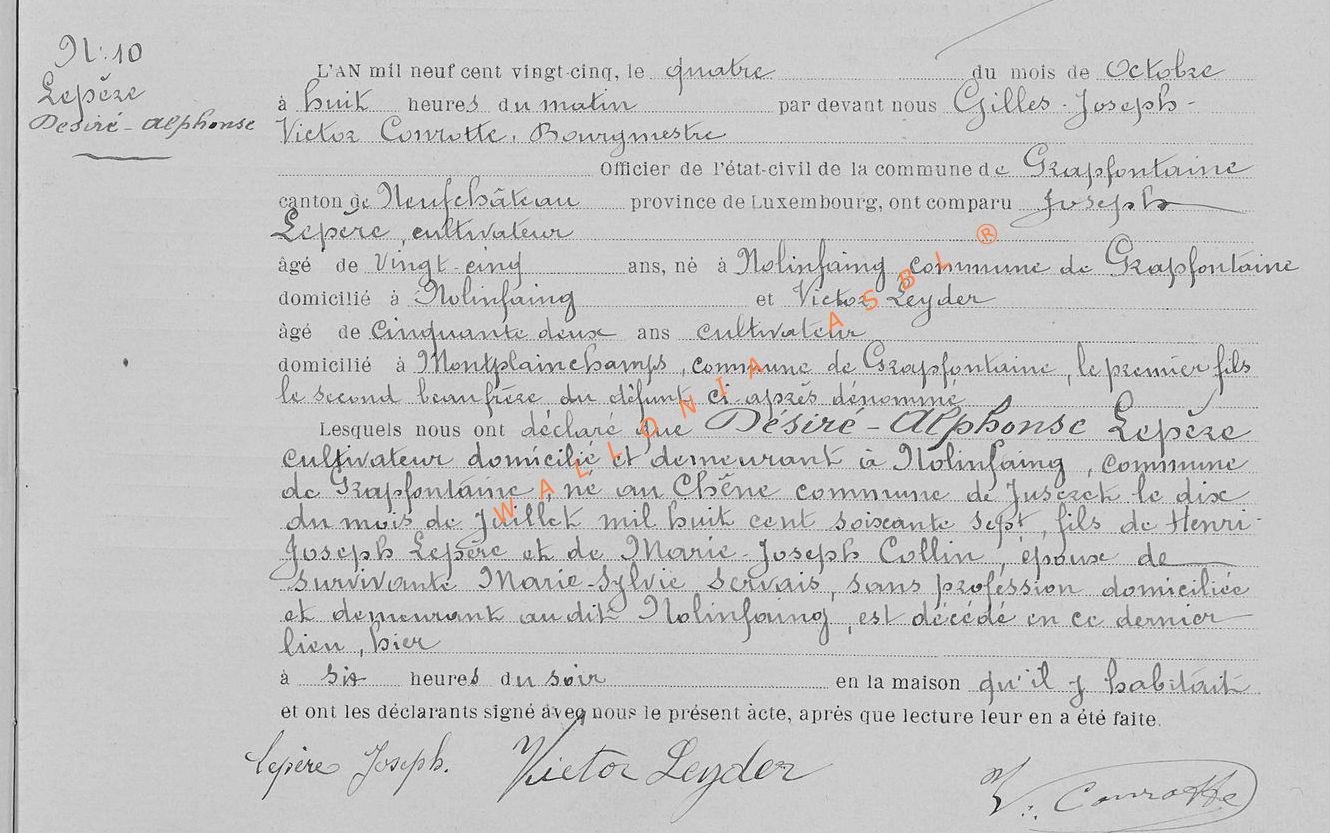 N: 10
Lepère
Désiré - Alphonse
L'AN mil neuf cent vingt-cinq, le quatre du mois de Octobre
à huit heures du matin par devant nous Gilles - Joseph -
Victor Conrotte, Bourgmestre
Officier de l'état-civil de la commune de Grapfontaine
canton de Neufchâteau province de Luxembourg, ont comparu Joseph
Lepère, cultivateur
âgé de vingt-cinq ans, né à Nolinfaing commune de Grapfontaine
domicilié à Nolinfaing et Victor Leyder
âgé de cinquante deux ans cultivateur
domicilié à Montplainchamps, commune de Grapfontaine, le premier fils
le second beaufrère du défunt ci après dénommé.
Lesquels nous ont déclaré que Désiré - Alphonse Lepère
cultivateur domicilié et demeurant à Nolinfaing, commune
de Grapfontaine, né au Chêne commune de Juseret le dix
du mois de Juillet mil huit cent soixante sept, fils de Henri-
Joseph Lepère et de Marie - Joseph Collin, époux de
survivante Marie-Sylvie Servais, sans profession domiciliée
et demeurant audit Nolinfaing, est décédé en ce dernier
lieu, hier
à six heures du soir en la maison qu'il y habitait
et ont les déclarants signé avec nous le présent acte, après que lecture leur en a été faite.
Lepère Joseph. Victor Leyder V. Conrotte
WALLONIA ASBL ®